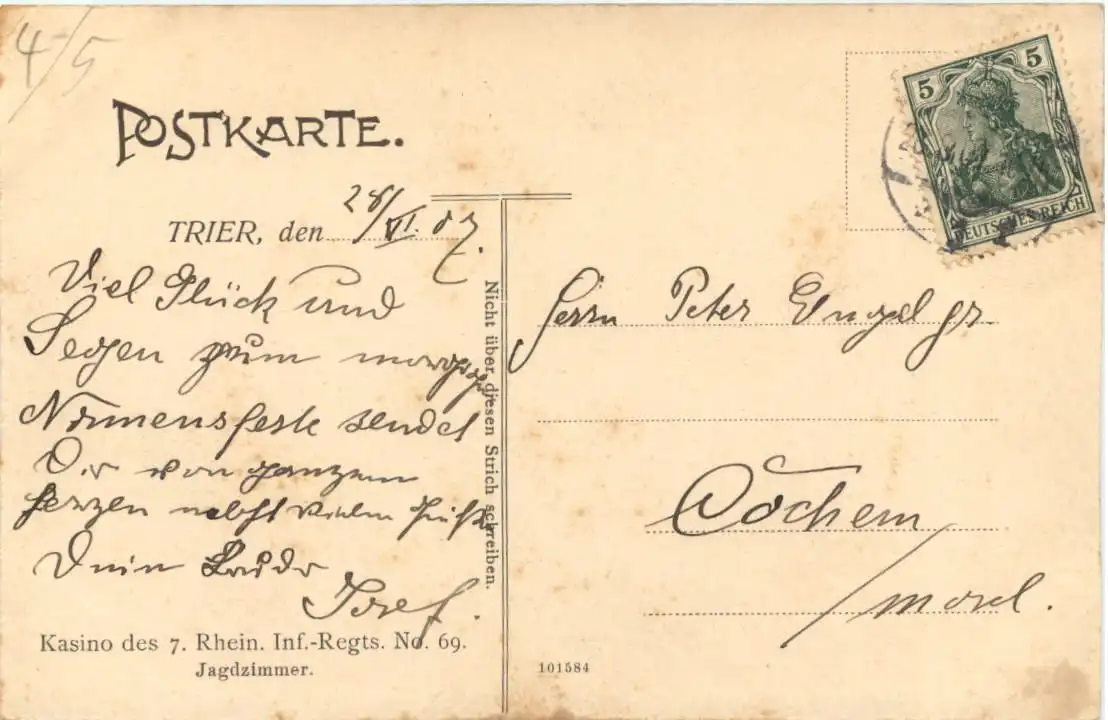 4/5
POSTKARTE.
5 5
DEUTSCHES REICH
TRIER, den 28/VI. 07.
Viel Glück und
Segen zum morgigen
Namensfeste sendet
Dir von ganzem
Herzen nebst vielen Grüßen
Dein Bruder
Josef.
Kasino des 7. Rhein. Inf.-Regts. No. 69.
Jagdzimmer.
Nicht über diesen Strich schreiben.
Herrn Peter
Cochem
/Mosel.
101584